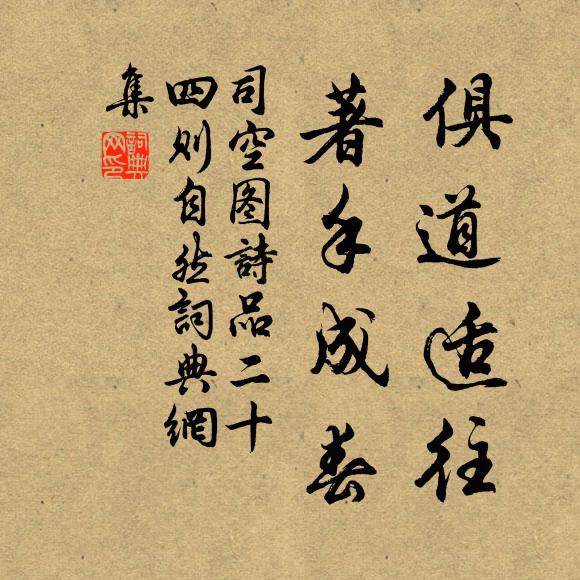 俱道适往
著手成春
司空图詩品二十
四则自然詞典網
集
詞典
网印